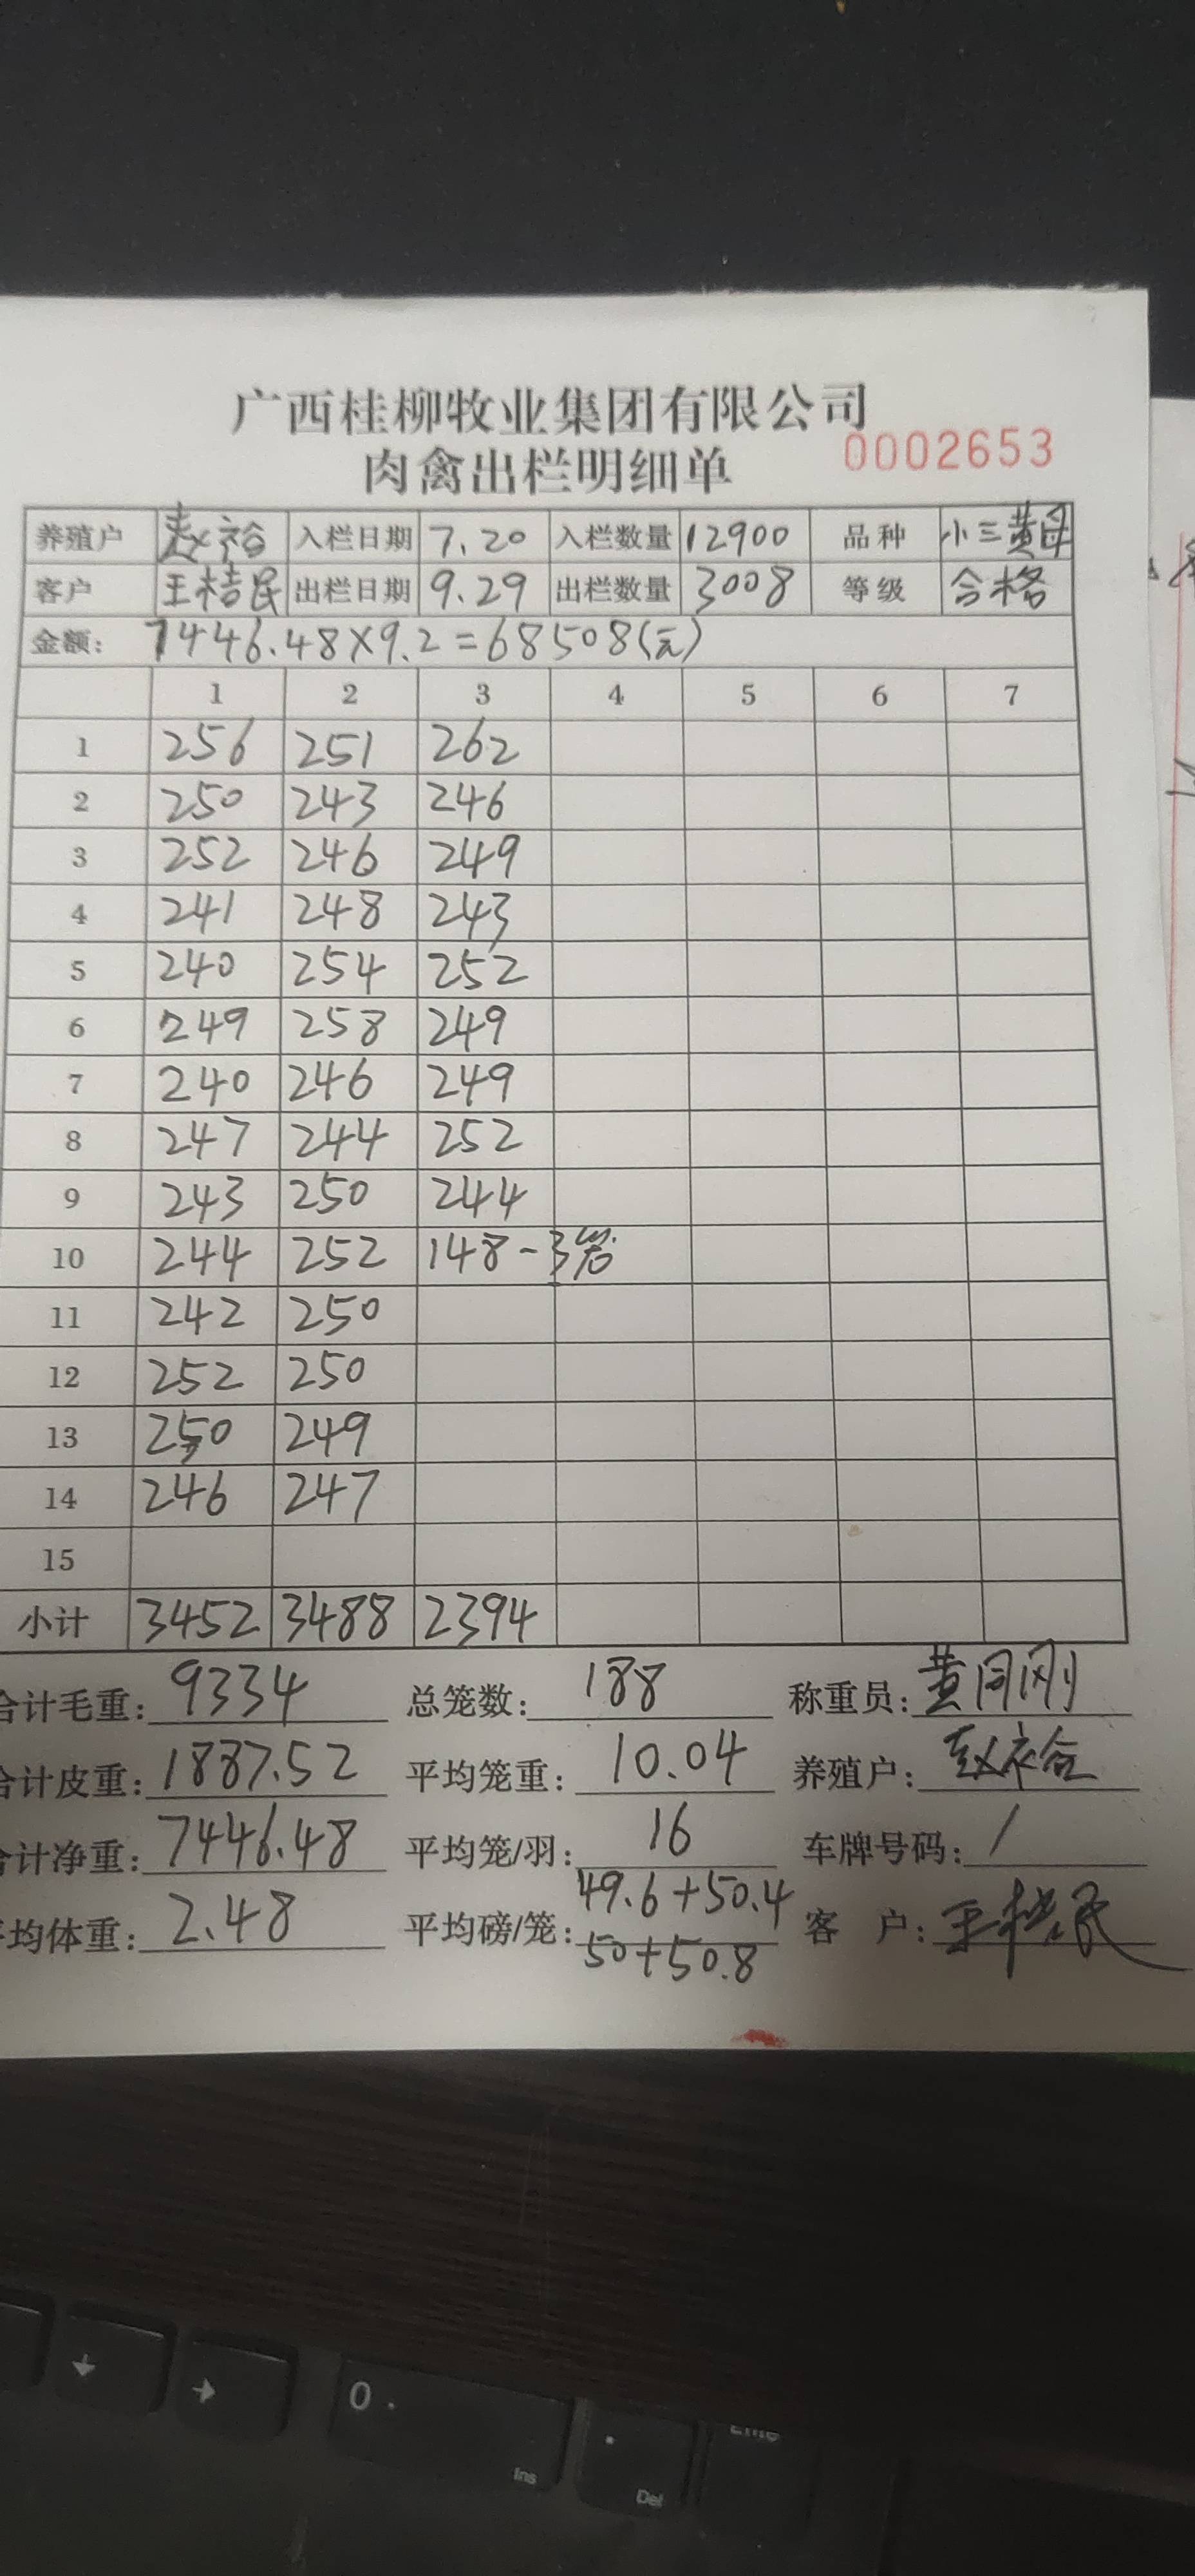 广西桂柳牧业集团有限公司
肉禽出栏明细单 0002653
养殖户 赵裕 入栏日期 7.20 入栏数量 12900 品种 小三黄母
客户 王桔民 出栏日期 9.29 出栏数量 3008 等级 合格
金额: 7446.48×9.2=68508(元)
1 2 3 4 5 6 7
1 256 251 262
2 250 243 246
3 252 246 249
4 241 248 243
5 240 254 252
6 249 258 249
7 240 246 249
8 247 244 252
9 243 250 244
10 244 252 148-3笼
11 242 250
12 252 250
13 250 249
14 246 247
15
小计 3452 3488 2394
合计毛重: 9334 总笼数: 188 称重员: 黄同刚
合计皮重: 1887.52 平均笼重: 10.04 养殖户: 赵裕
合计净重: 7446.48 平均笼/羽: 16 车牌号码: /
平均体重: 2.48 平均磅/笼: 49.6+50.4 客户: 王桔民
50+50.8
0 .
Ins
.
Del